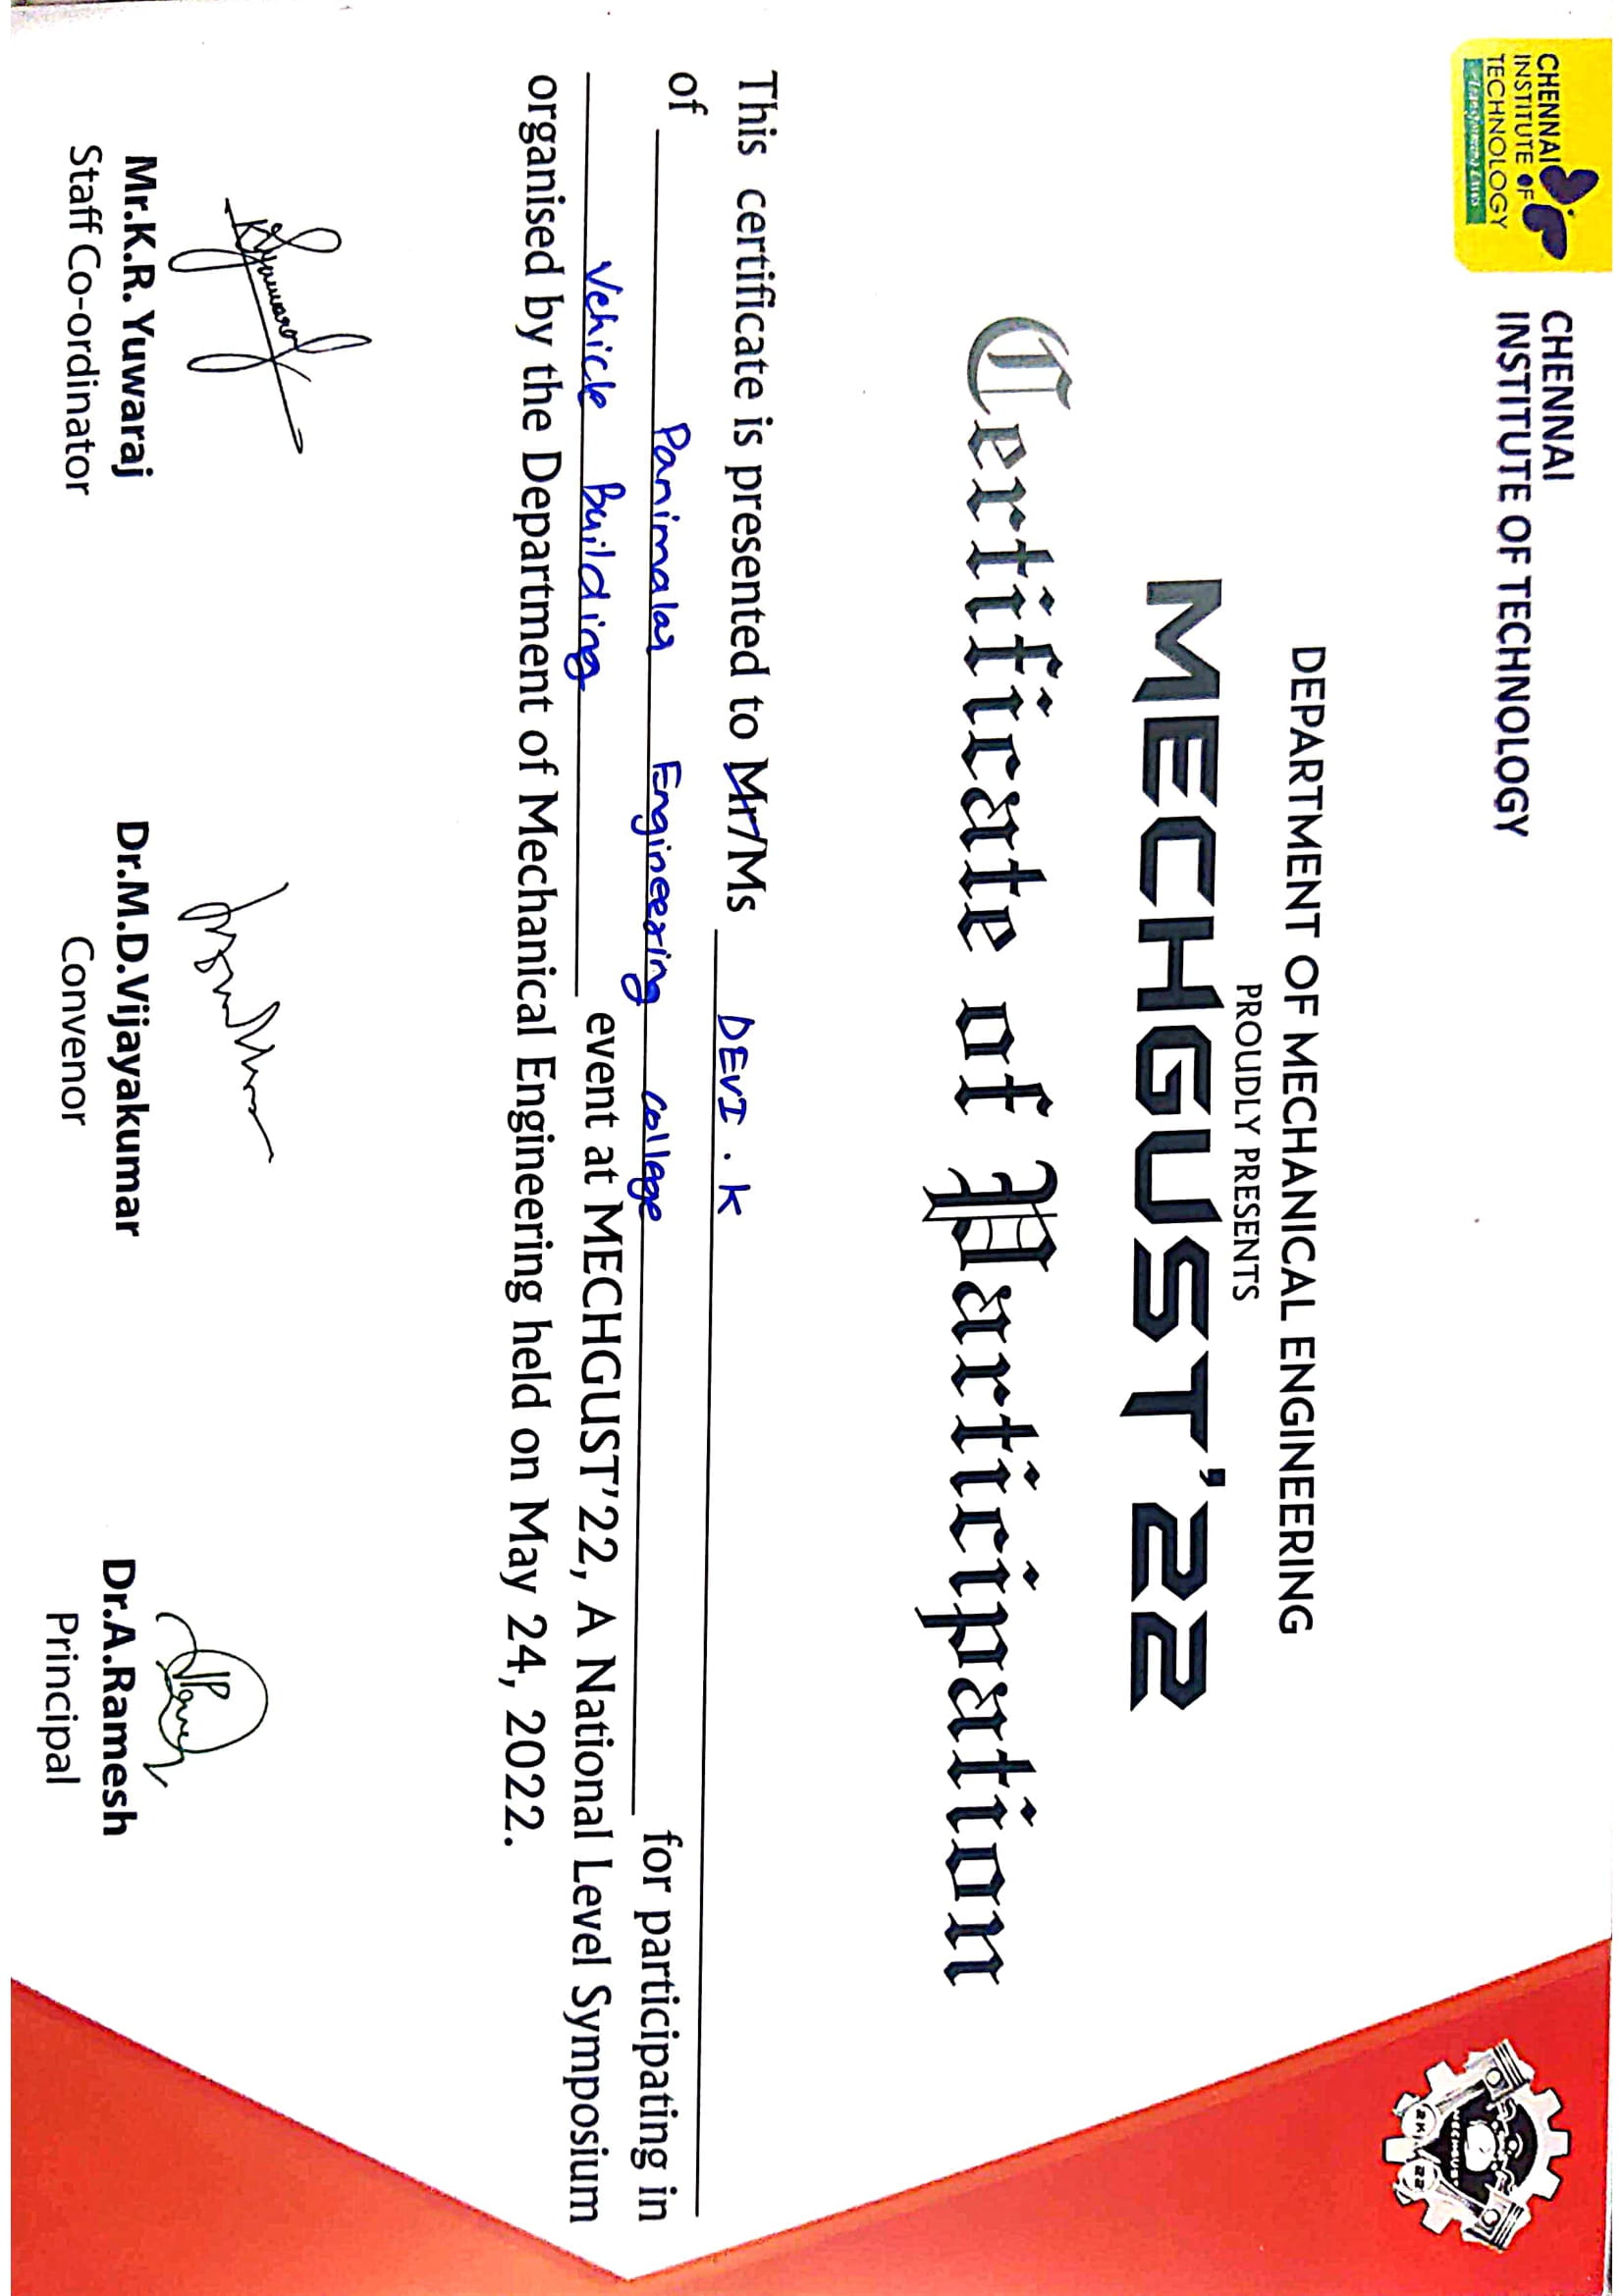 CHENNAI
INSTITUTE OF
TECHNOLOGY
Transforming Lives
CHENNAI
INSTITUTE OF TECHNOLOGY
MECHGUST
2K 22
DEPARTMENT OF MECHANICAL ENGINEERING
PROUDLY PRESENTS
MECHGUST'22
Certificate of Participation
This certificate is presented to Mr/Ms DEVI . K
of Panimalar Engineering College for participating in
Vehicle Building event at MECHGUST'22, A National Level Symposium
organised by the Department of Mechanical Engineering held on May 24, 2022.
Mr.K.R. Yuwaraj
Staff Co-ordinator
Dr.M.D.Vijayakumar
Convenor
Dr.A.Ramesh
Principal